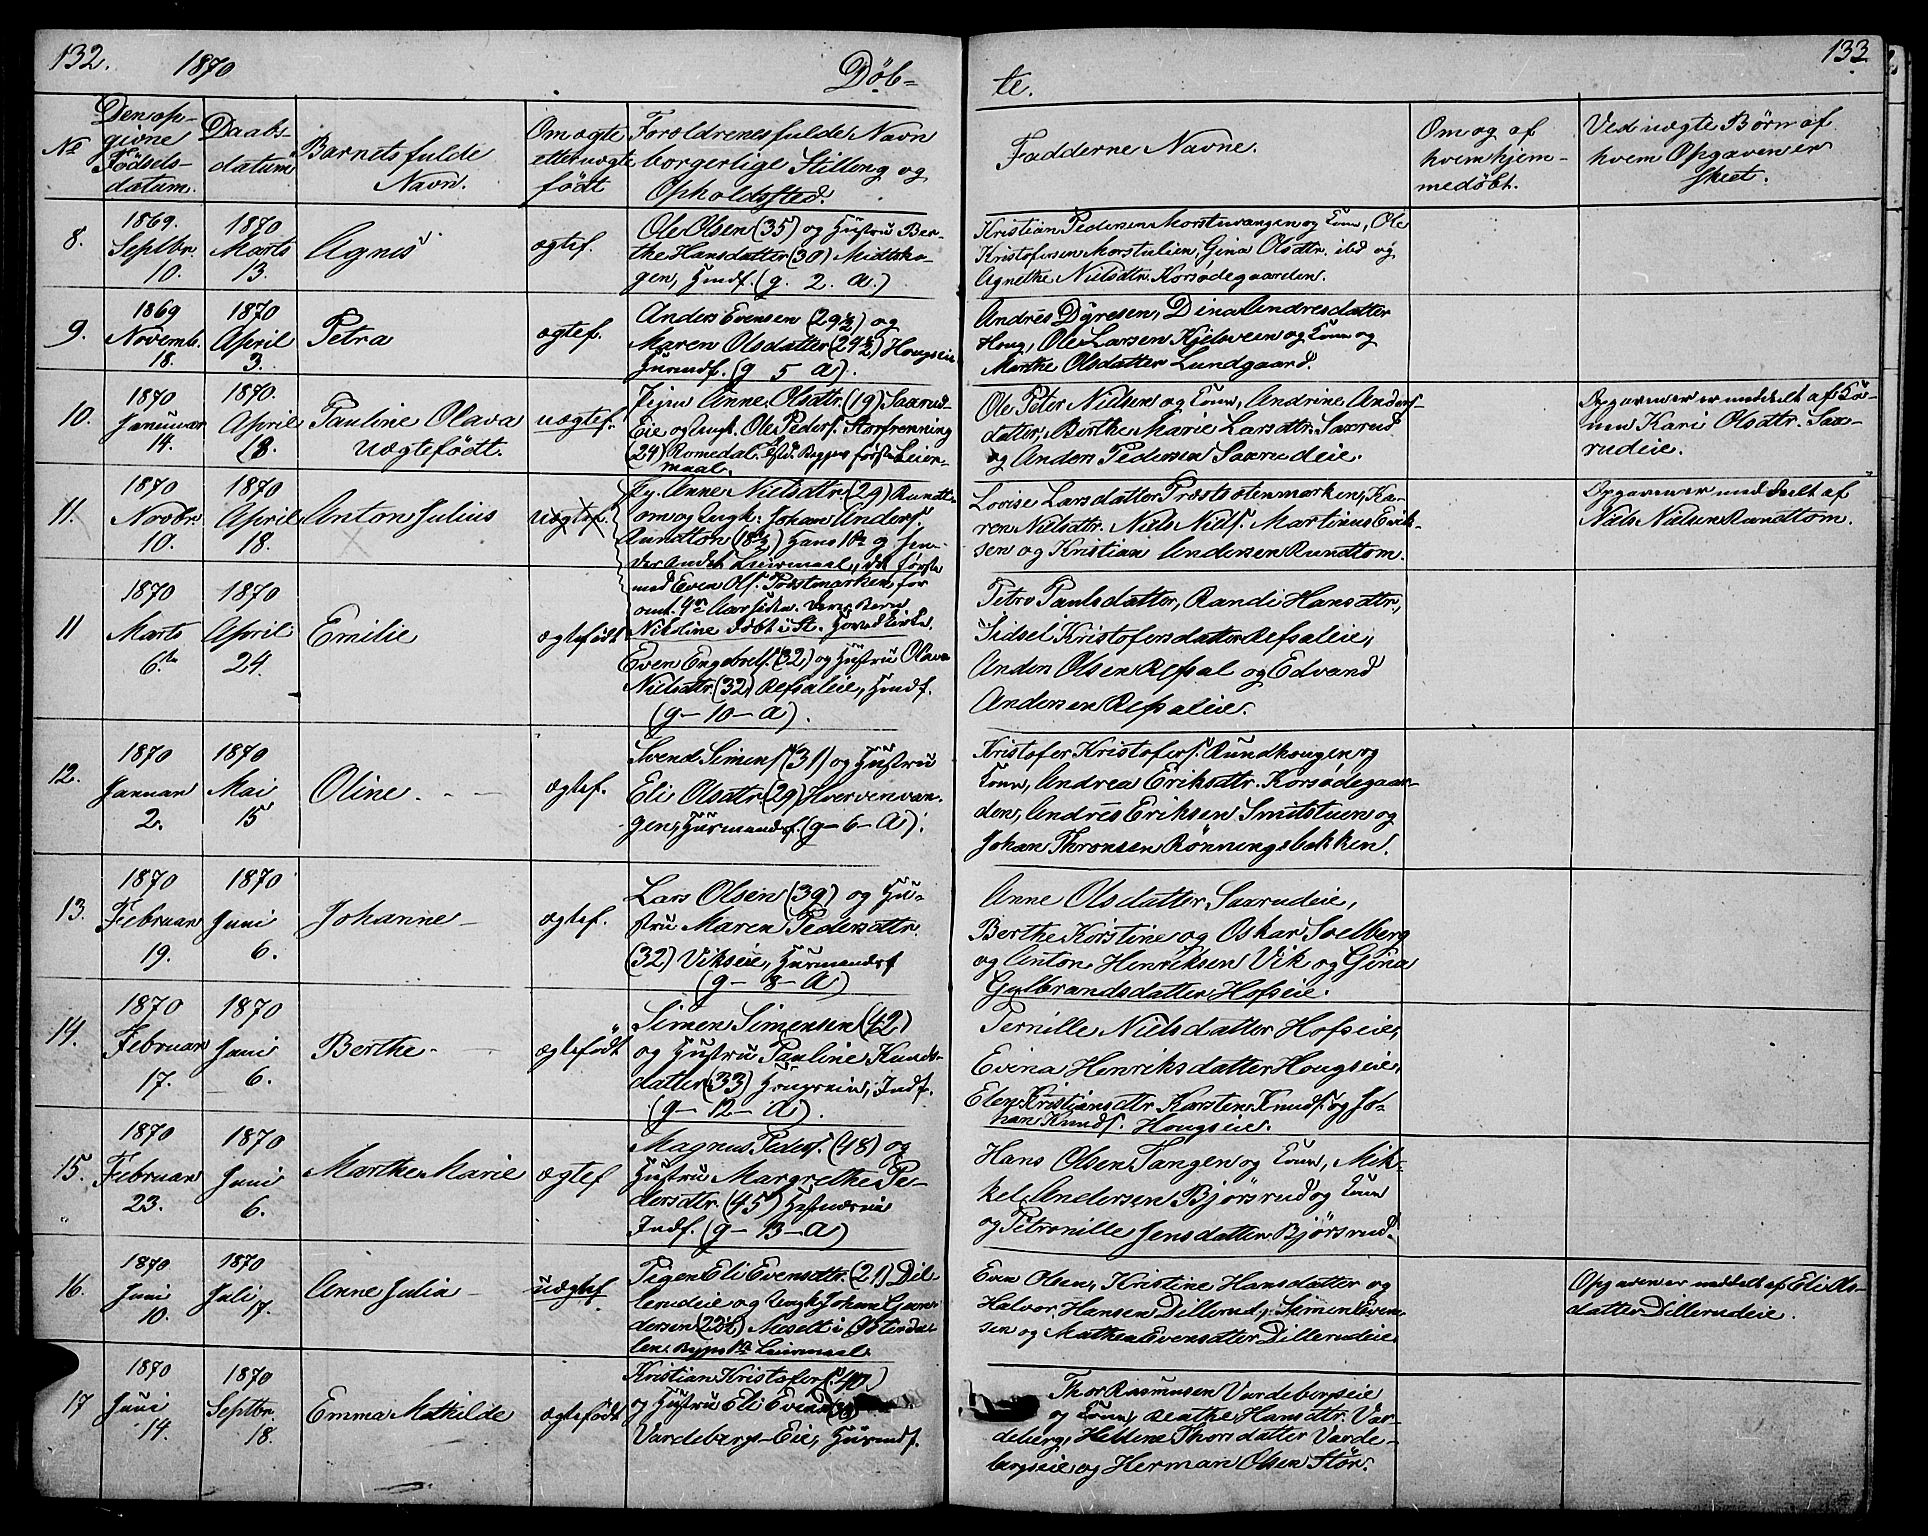 132.
1870
Døb-
te.
133
No
Den op-
givne
Fødsels-
datum.
Daabs
datum
Barnets fulde
Navn.
Om ægte
eller uægte
født
Forældrenes fulde Navn
borgerlige Stilling og
Opholdssted.
Faddernes Navne.
Om og af
hvem hjem-
medøbt.
Ved uægte Børn af
hvem Opgaven er
skeet.
8.
1869.
Septbr.
10.
1870
Marts
13.
Agnis
ægtef.
Ole Olsen (35) og Hustru Ber-
the Hansdatter (30) Midtsko-
gen, Hmdf. (g. 2. A.)
Kristian Pedersen Morstuvangen og Kone, Ole
Kristofersen Morstulien, Gina Olsdtr. ibd og
Agnethe Nielsdtr. Korsødegaarden.
9.
1869
Novemb.
18.
1870
April
3.
Petra
ægtef.
Anders Evensen (29½) og
Maren Olsdatter (29½) Hougseie
Husmdf. (g 5 A).
Andrés Dyresen, Dina Andresdatter
Houg, Ole Larsen Kjelsveen og Kone og
Marthe Olsdatter Lundgaard.
10.
1870
Januar
14.
1870.
April
18.
Pauline Olava
Uægtefødt.
uægtef.
Pigen Anne Olsdtr. (19) Saxrud-
Eie og Ungk. Ole Peders. Storrønning
(24) Romedal. Begges første Leier-
maal.
Ole Peter Nielsen og Kone, Andrine Anders-
datter, Birthe Marie Larsdtr. Saxrud
og Anders Pedersen Saxrudeie.
Opgaven er meddelt af Ko-
nen Kari Olsdtr. Sax-
rudeie.
11.
1870
Novbr.
10.
1870
April
18.
Anton Julius
uægtef.
Pg. Anne Nielsdtr. (29) Rundt-
om og Ungk: Johan Anders.
Rundtom (18½) Hans 1ste og hen-
des andet Leiermaal, det første
med Even Ols. Præstmarken for
omt. 4re Aar siden. Deres Barn
Nikoline døbt i St.
Lovise Larsdatter Præstsætermarken, Ka-
ren Nielsdtr. Niels Niels. Martinus Erik-
sen og Kristian Andersen Rundtom.
Opgaven er meddeelt af
Niels Nielsen Rundtom.
11
1870
Marts
6te
1870
April
24.
Emilie
ægtefødt
Even Engebrets. (32) og Hustru Olava
Nielsdtr. (32) Refsaleie, Hmdf.
(g-10-A).
Petro Paulsdatter, Randi Hansdtr,
Sidsel Kristofersdatter Refsaleie,
Anders Olsen Refsal og Edvard
Andersen Refsaleie.
12.
1870
Januar
2.
1870
Mai
15
Oline.
ægtef.
Svend Simens (31) og Hustru
Eli Olsdtr. (29) Hvervenvan-
gen, Husmandsf. (g-6-A).
Kristofer Kristofers. Rundhougen og
Kone, Andrea Eriksdtr. Korsødegaar-
den, Andrés Eriksen Smitstuen og
Johan Thronsen Rønningsbakken.
13.
1870
Februar
19.
1870
Juni
6.
Johanne
ægtef.
Lars Olsen (39) og Hu-
stru Maren Pedersdtr.
(32) Vikseie, Husmandsf.
(g-8-A)
Anne Olsdatter Saxrudeie,
Berthe Kirstine og Oskar Solberg
og Anton Henriksen Vik og Gina
Gulbrandsdatter Hofseie.
14.
1870
Februar
17.
1870
Juni
6.
Berthe
ægtefødt
Simen Simensen (42)
og Hustru Pauline Knuds-
datter (33) Hougseie, Indf.
(g-12-A).
Pernille Nielsdatter Hofseie,
Evina Henriksdatter Hougseie,
Elen Kristiansdtr. Karsten Knuds. og Jo-
han Knuds. Hougseie.
15.
1870
Februar
23.
1870
Juni
6.
Marthe Marie
ægtef
Magnus Peders. (48) og
Hustru Margrethe Pe-
dersdtr. (45)
Indf. (g-13-A)
Hans Olsen Tangen og Kone, Mik-
kel Andersen Bjørsrud og Kone
og Petronille Jensdatter Bjørsrud.
16.
1870
Juni
10.
1870
Juli
17.
Anne Julia
uægtef.
Pigen Eli Evensdtr. (21) Dil-
lerudeie og Ungk. Johan Gun-
dersen (22½) Messelt i Østerda-
len. Begges 1ste Leiermaal.
Even Olsen, Kristine Hansdatter og
Halvor Hansen Dillerud, Simen Even-
sen og Mathea Evensdatter Dillerudeie
Opgaven er meddelt af Eli Ols-
datter Dillerudeie.
17
1870
Juni
14.
1870
Septbr.
18.
Emma Mathilde
ægtefødt
Kristian Kristofers. (40)
og Hustru Eli
Vardebergs-Eie, Husmdf.
Thor Rasmusen Vardebergseie
og Kone, Beathe Hansdtr. Var-
deberg, Helline Thorsdatter Varde-
bergseie og Herman Olsen Stor.